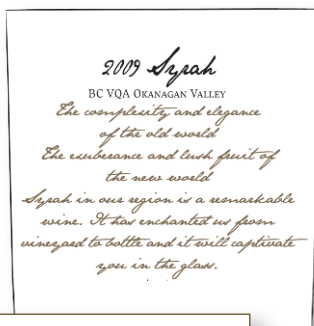 2009 Syrah
BC VQA Okanagan Valley
The complexity and elegance
of the old world
The exuberance and lush fruit of
the new world
Syrah in our region is a remarkable
wine. It has enchanted us from
vineyard to bottle and it will captivate
you in the glass.